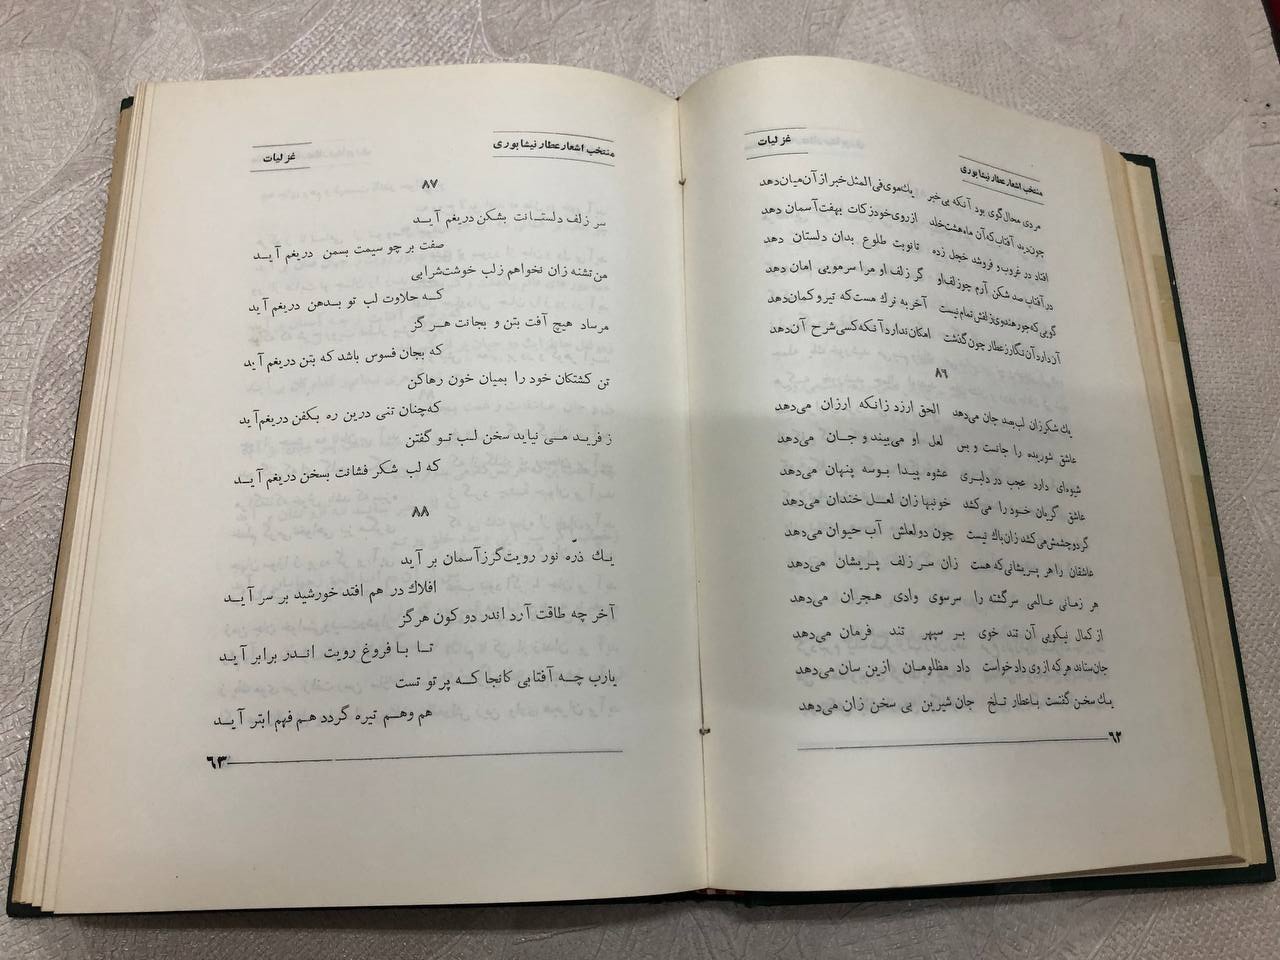 غزلیات
منتخب اشعار عطار نیشابوری
مردی محال گوی بود آنکه بی خبر یك موی فی المثل خبر از آن میان دهد
چون دید آفتاب که آن ماه هشت خلد از روی خود زکات بهفت آسمان دهد
افتاد در غروب و فروشد خجل زده تا نوبت طلوع بدان دلستان دهد
در آفتاب صد شکن آرم چو زلف او گر زلف او مرا سر مویی امان دهد
گویی که جور هندوی زلفش تمام نیست آخر به ترك مست که تیر و کمان دهد
آن دارد آن نگار ز عطار چون گذشت امکان ندارد آنکه کسی شرح آن دهد
۸۶
یك شکر زان لب بصد جان می‌دهد الحق ارزد زانکه ارزان می‌دهد
عاشق شوریده را جانست و بس لعل او می‌بیند و جان می‌دهد
شیوه‌ای دارد عجب در دلبری عشوه پیدا بوسه پنهان می‌دهد
عاشق گریان خود را می‌کشد خونبها زان لعل خندان می‌دهد
گر دو چشمش می‌کشد زان باك نیست چون دو لعلش آب حیوان می‌دهد
عاشقان را هر پریشانی که هست زان سر زلف پریشان می‌دهد
هر زمانی عالمی سرگشته را سر سوی وادی هجران می‌دهد
از کمال نیکویی آن تند خوی بر سپهر تند فرمان می‌دهد
جان ستاند هر که از وی داد خواست داد مظلومان ازین سان می‌دهد
یك سخن گفتست با عطار تلخ جان شیرین بی سخن زان می‌دهد
۶۲
منتخب اشعار عطار نیشابوری
غزلیات
۸۷
سر زلف دلستانت بشکن دریغم آید
صفت بر چو سیمت بسمن دریغم آید
من تشنه زان نخواهم ز لب خوشت شرابی
که حلاوت لب تو بدهن دریغم آید
مرساد هیچ آفت بتن و بجانت هرگز
که بجان فسوس باشد که بتن دریغم آید
تن کشتگان خود را بمیان خون رها کن
که چنان تنی درین ره بکفن دریغم آید
ز فرید می نیاید سخن لب تو گفتن
که لب شکر فشانت بسخن دریغم آید
۸۸
یك ذرّه نور رویت گر ز آسمان بر آید
افلاك در هم افتد خورشید بر سر آید
آخر چه طاقت آرد اندر دو کون هرگز
تا با فروغ رویت اندر برابر آید
یارب چه آفتابی کانجا که پرتو تست
هم وهم تیره گردد هم فهم ابتر آید
۶۳